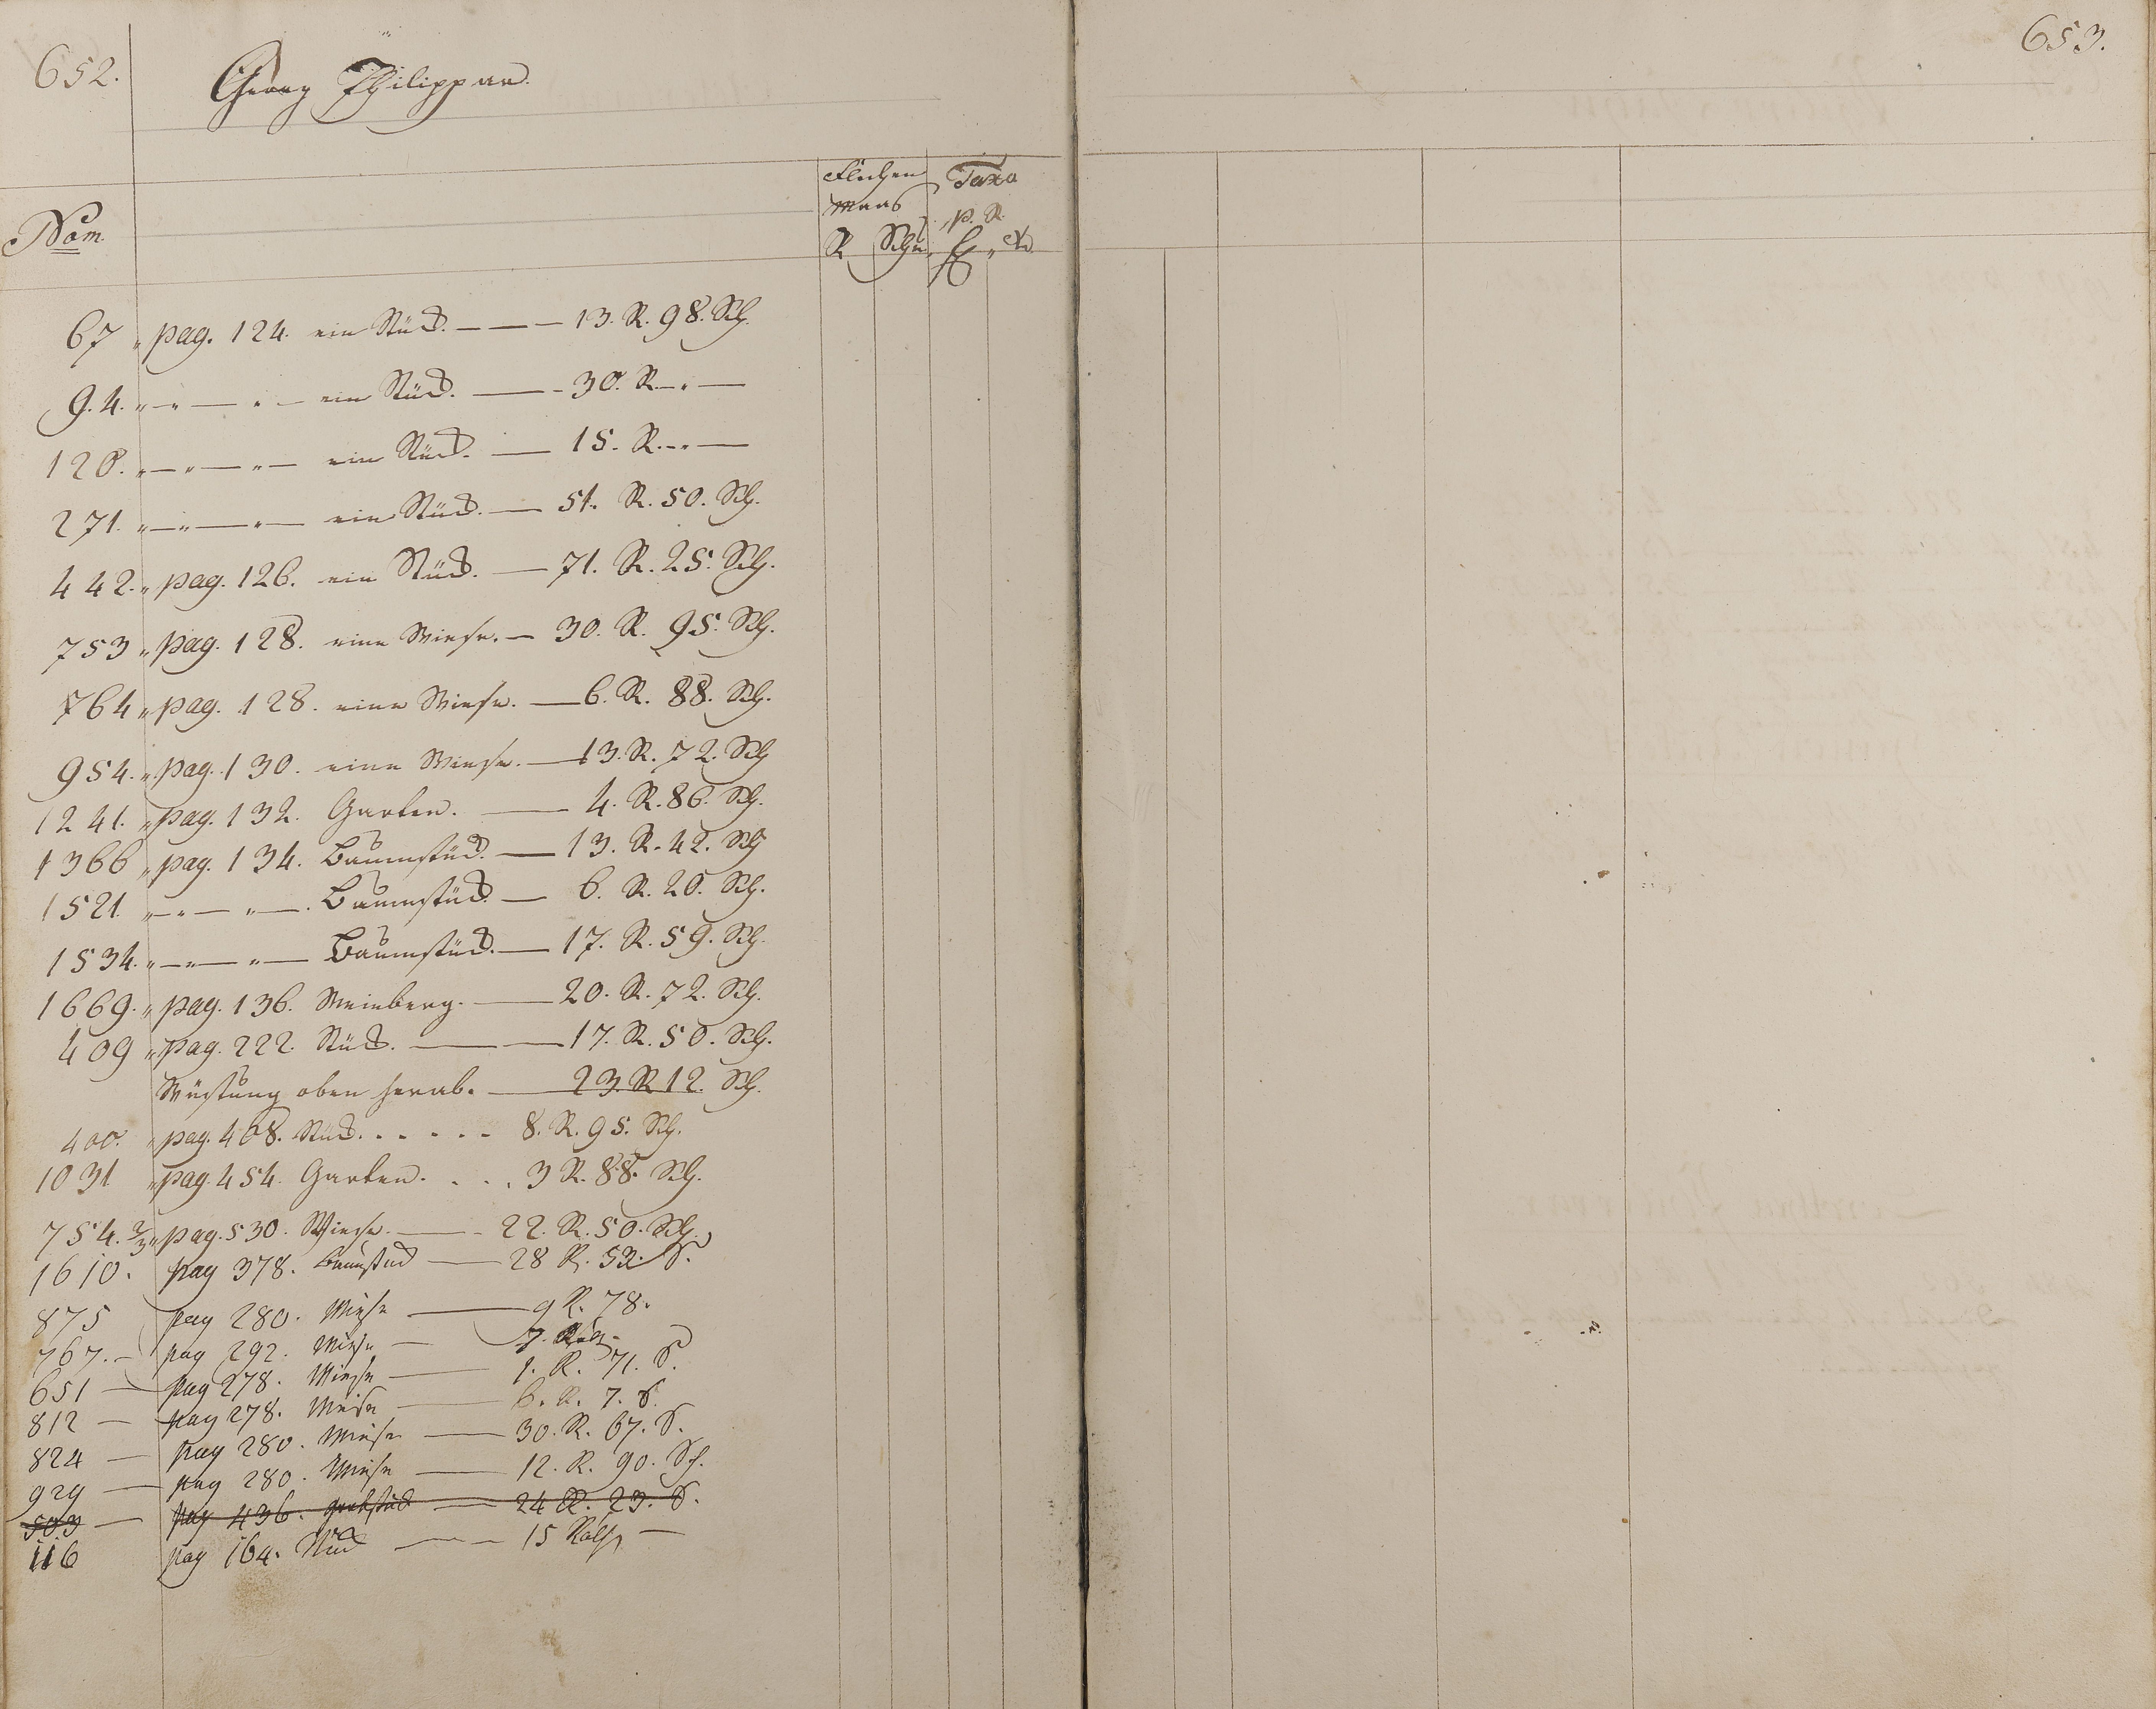 652.
Georg Philippar.
Flechen Taxa
Maas p. R.
Nom. R Schu f x
67 " pag. 124. ein Stück. — — — 13. R. 98. Sch.
94. " — " — " — ein Stück. — 30. R. — " —
120. " — " — " — ein Stück. — 15. R. — " —
271. " — " — " — ein Stück. — 51. R. 50. Sch.
442. " pag. 126. ein Stück. — 71. R. 25. Sch.
753 " pag. 128. eine Wiese. — 30. R. 95. Sch.
764 " pag. 128. eine Wiese. — 6. R. 88. Sch.
954. " pag. 130. eine Wiese. — 13. R. 72. Sch
1241. " pag. 132. Garten. — 4. R. 86. Sch.
1366 " pag. 134. Baumstück. — 13. R. 42. Sch
1521 " — " — " — Baumstück. — 6. R. 20. Sch.
1534. " — " — " — Baumstück. — 17. R. 59. Sch.
1669. " pag. 136. Weinberg. — 20. R. 72. Sch.
409 " pag. 222. Stück. — — 17. R. 50. Sch.
Wüstung oben herab. — 23. R 12. Sch.
400. " pag. 408. Stück. . . . . . 8. R. 95. Sch.
1031 " pag. 454. Garten. . . . 3 R. 88. Sch.
754. 2/3 " pag. 530. Wiese. — 22. R. 50. Sch.
1610. pag 378. Baumstück — 28 R. 53. S.
875 pag 280. Wiese — 9 R. 78.
767. — pag 292. Wiese — 7. R.
651 — pag 278. Wiese — 1. R. 71. S.
812 — pag 278. Wiese — 6. R. 7. S.
824 — pag 280. Wiese — 30. R. 67. S.
929 — pag 280. Wiese — 12. R. 90. Sch.
503 — pag 436. — 24 R. 23. S.
116 pag 164. Stück — 15 Ruth —
653.